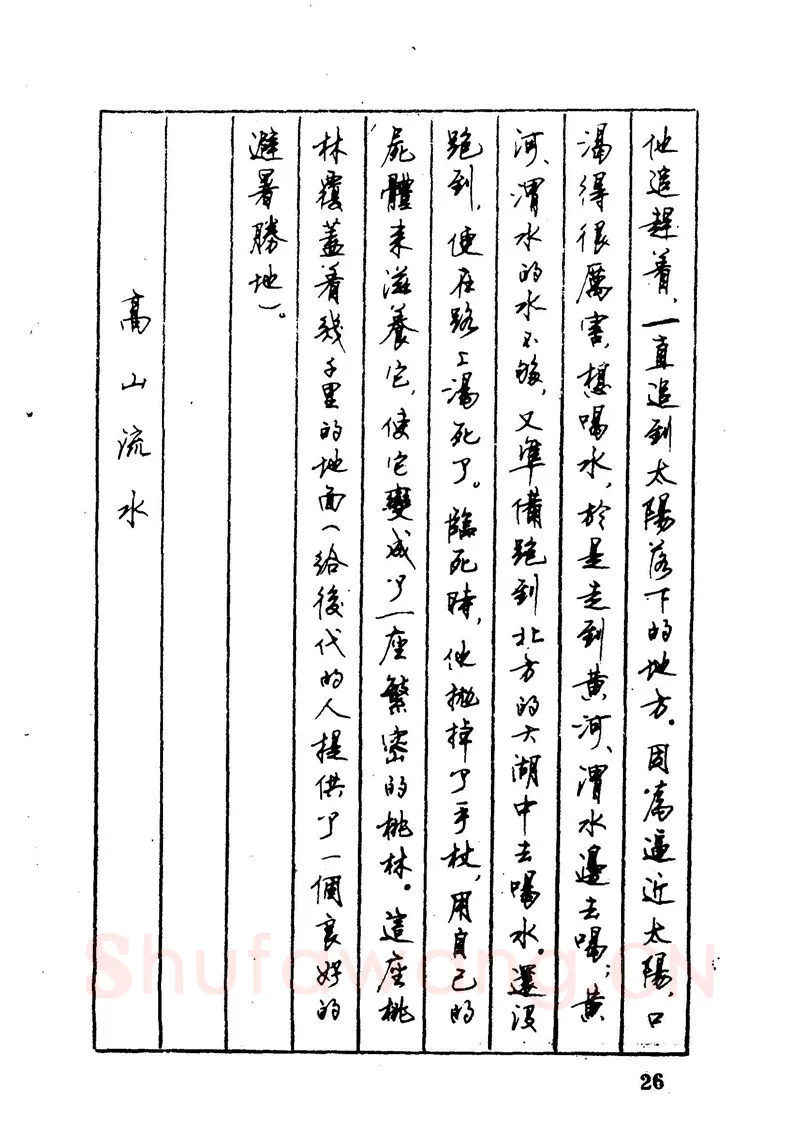 他追趕着,一直追到太陽落下的地方。因為逼近太陽,口
渴得很厲害,想喝水,於是走到黃河、渭水邊去喝;黃
河、渭水的水不夠,又準備跑到北方的大湖中去喝水,還沒
跑到,便在路上渴死了。臨死時,他拋掉了手杖,用自己的
屍體來滋養它,使它變成了一座繁密的桃林。這座桃
林覆蓋着幾千里的地面(給後代的人提供了一個良好的
避暑勝地)。
高山流水
26
Shufawang.CN